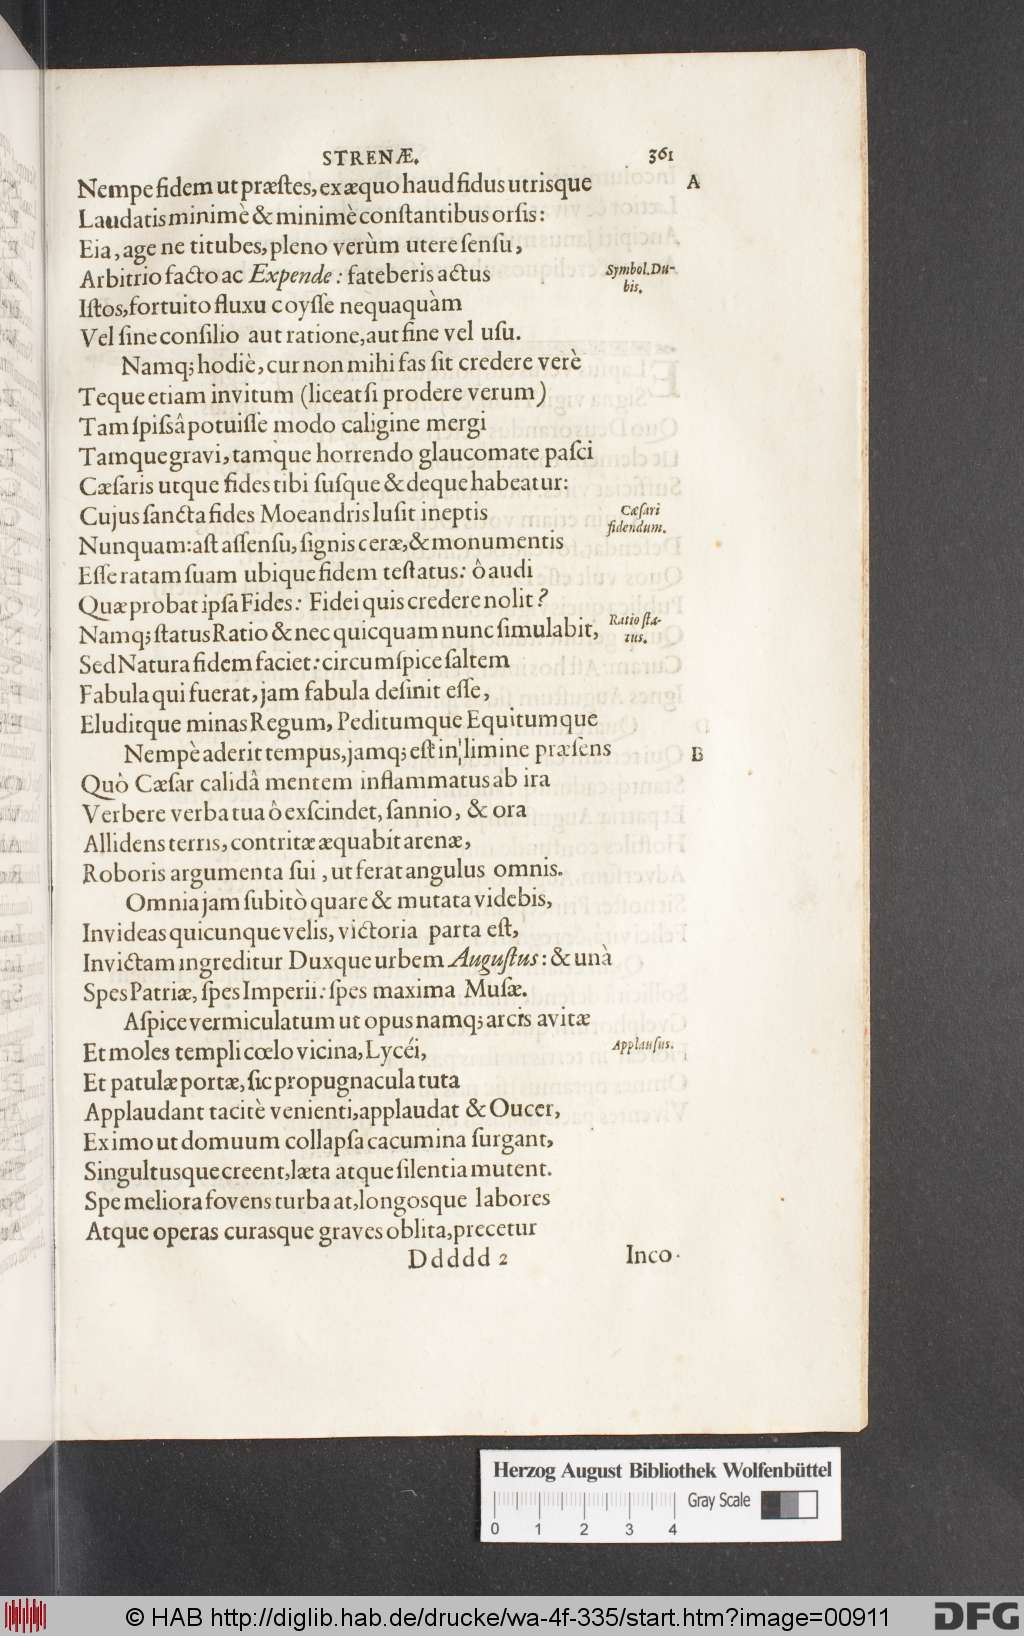 STRENÆ. 361
Nempe fidem ut præſtes, ex æquo haud fidus utrisque A
Laudatis minimè & minimè conſtantibus orſis:
Eia, age ne titubes, pleno verùm utere ſenſu,
Arbitrio facto ac Expende: fateberis actus Symbol. Du-
bis.
Iſtos, fortuito fluxu coyſſe nequaquàm
Vel ſine conſilio aut ratione, aut fine vel uſu.
Namq; hodiè, cur non mihi fas ſit credere verè
Teque etiam invitum (liceat ſi prodere verum)
Tam ſpiſsâ potuiſſe modo caligine mergi
Tamque gravi, tamque horrendo glaucomate paſci
Cæſaris utque fides tibi ſuſque & deque habeatur:
Cujus ſancta fides Moeandris luſit ineptis Cæſari
fidendum.
Nunquam: aſt aſſenſu, ſignis ceræ, & monumentis
Eſſe ratam ſuam ubique fidem teſtatus: ô audi
Quæ probat ipſa Fides: Fidei quis credere nolit?
Namq; ſtatus Ratio & nec quicquam nunc ſimulabit, Ratio ſta-
tus.
Sed Natura fidem faciet: circumſpice ſaltem
Fabula qui fuerat, jam fabula deſinit eſſe,
Eluditque minas Regum, Peditumque Equitumque
Nempè aderit tempus, jamq; eſt in limine præſens B
Quò Cæſar calidâ mentem inflammatus ab ira
Verbere verba tua ô exſcindet, ſannio, & ora
Allidens terris, contritæ æquabit arenæ,
Roboris argumenta ſui, ut ferat angulus omnis.
Omnia jam ſubitò quare & mutata videbis,
Invideas quicunque velis, victoria parta eſt,
Invictam ingreditur Duxque urbem Auguſtus: & unà
Spes Patriæ, ſpes Imperii: ſpes maxima Muſæ.
Aſpice vermiculatum ut opus namq; arcis avitæ
Et moles templi cœlo vicina, Lycéi, Applauſus.
Et patulæ portæ, ſic propugnacula tuta
Applaudant tacitè venienti, applaudat & Oucer,
Ex imo ut domuum collapſa cacumina ſurgant,
Singultusque creent, læta atque ſilentia mutent.
Spe meliora fovens turba at, longosque labores
Atque operas curasque graves oblita, precetur
Ddddd 2 Inco-
Herzog August Bibliothek Wolfenbüttel
Gray Scale
0 1 2 3 4
© HAB http://diglib.hab.de/drucke/wa-4f-335/start.htm?image=00911 DFG